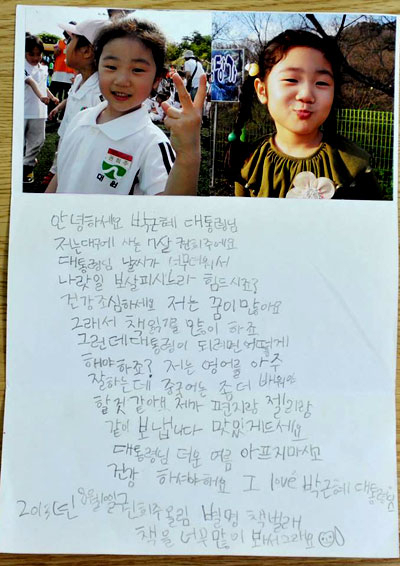 대천
안녕하세요 박근혜 대통령님
저는 대구에 사는 7살 권희주에요
대통령님 날씨가 너무더워서
나랏일 보살피시느라 힘드시죠?
건강조심하세요 저는 꿈이 많아요
그래서 책읽기를 많이 하죠
그런데 대통령이 되려면 어떻게
해야하죠? 저는 영어를 아주
잘하는데 중국어는 좀더 배워야
할 것 같아요 제가 편지랑 젤리랑
같이 보냅니다 맛있게드세요
대통령님 더운 여름 아프지마시고
건강 하셔야해요 I love 박근혜 대통령님
2013년 8월 권희주올림 별명 책벌래
책을 너무 많이 봐서그래요